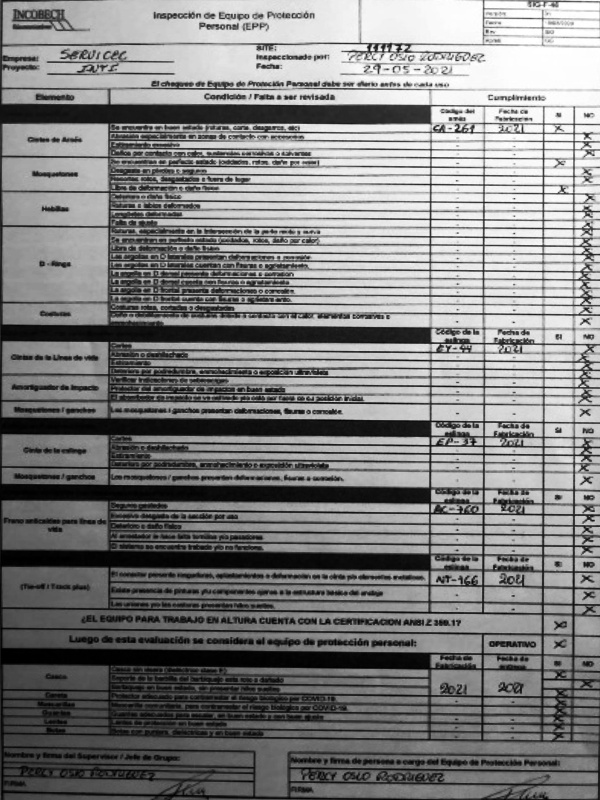 SIG-F-40
INCOBECH
Inspección de Equipo de Protección
Personal (EPP)
Empresa: SERVICEC
Proyecto: INTI
SITE: 111172
Inspeccionado por: PERCY OSIO RODRIGUEZ
Fecha: 29-05-2021
El chequeo de Equipo de Protección Personal debe ser diario antes de cada uso
Elemento Condición / Falta a ser revisada Cumplimiento
Código del arnés Fecha de Fabricación SI NO
Cintas de Arnés
Se encuentra en buen estado (roturas, corte, desgarros, etc) CA-261 2021 X
Abrasión especialmente en zonas de contacto con accesorios - - X
Estiramiento excesivo - - X
Daños por contacto con calor, sustancias corrosivas o solventes - - X
Mosquetones
Se encuentran en perfecto estado (oxidados, rotos, daño por calor) - - X
Desgaste en pivotes o seguros - - X
Resortes rotos, desgastados o fuera de lugar - - X
Libre de deformación o daño físico - - X
Hebillas
Deterioro o daño físico - - X
Roturas o labios deformados - - X
Lengüetas deformadas - - X
Falta de ajuste - - X
D - Rings
Roturas, especialmente en la intersección de la parte recta y curva - - X
Se encuentran en perfecto estado (oxidados, rotos, daño por calor) - - X
Libre de deformación o daño físico - - X
Las argollas en D laterales presentan deformaciones o corrosión - - X
Las argollas en D laterales cuentan con fisuras o agrietamiento. - - X
La argolla en D dorsal presenta deformaciones o corrosión - - X
La argolla en D dorsal cuenta con fisuras o agrietamiento - - X
La argolla en D frontal presenta deformaciones o corrosión. - - X
La argolla en D frontal cuenta con fisuras o agrietamiento. - - X
Costuras
Costuras rotas, cortadas o desgastadas - - X
Código de la eslinga Fecha de Fabricación SI NO
Cintas de la Línea de vida
Cortes EY-44 2021 X
Abrasión o deshilachado - - X
Estiramiento - - X
Deterioro por podredumbre, enmohecimiento o exposición ultravioleta - - X
Amortiguador de impacto
Verificar indicadores de sobrecargas - - X
Protector del amortiguador de impactos en buen estado - - X
El absorbedor de impacto se ve estirado y/o está por fuera de su posición inicial. - - X
Mosquetones / ganchos
Los mosquetones / ganchos presentan deformaciones, fisuras o corrosión. - - X
Código de la eslinga Fecha de Fabricación SI NO
Cinta de la eslinga
Cortes EP-37 2021 X
Abrasión o deshilachado - - X
Estiramiento - - X
Deterioro por podredumbre, enmohecimiento o exposición ultravioleta - - X
Mosquetones / ganchos
Los mosquetones / ganchos presentan deformaciones, fisuras o corrosión. - - X
Código de la eslinga Fecha de Fabricación SI NO
Freno anticaídas para línea de vida
Seguros gastados AC-760 2021 X
Excesivo desgaste de la sección por uso - - X
Deterioro o daño físico - - X
Al arrestador le hace falta tornillos y/o pasadores - - X
El sistema se encuentra trabado y/o no funciona. - - X
Código de la eslinga Fecha de Fabricación SI NO
(Tie-off / Track plus)
El conector presenta rasgaduras, aplastamientos o deformación en la cinta y/o elementos metálicos. NT-166 2021 X
Existe presencia de pinturas y/u componentes ajenos a la estructura básica del anclaje - - X
Las uniones y/o las costuras presentan hilos sueltos. - - X
¿EL EQUIPO PARA TRABAJO EN ALTURA CUENTA CON LA CERTIFICACION ANSI Z 359.1? X
Luego de esta evaluación se considera el equipo de protección personal: OPERATIVO X
Fecha de Fabricación SI NO
Casco
Soporte de la barbilla del barbiquejo esta rota o dañado 2021 2021 X
Barbiquejo en buen estado, sin presentar hilos sueltos X
Careta Protector adecuado para contrarrestar el riesgo biológico por COVID-19. - - X
Mascarillas Mascarilla comunitaria, para contrarrestar el riesgo biológico por COVID-19. - - X
Guantes Guantes adecuados para escalar, en buen estado y con buen ajuste - - X
Lentes Lentes de protección en buen estado - - X
Botas Botas con puntera, dieléctricas y en buen estado - - X
Nombre y firma del Supervisor / Jefe de Grupo:
PERCY OSIO RODRIGUEZ
FIRMA
Nombre y firma de persona a cargo del Equipo de Protección Personal:
PERCY OSIO RODRIGUEZ
FIRMA